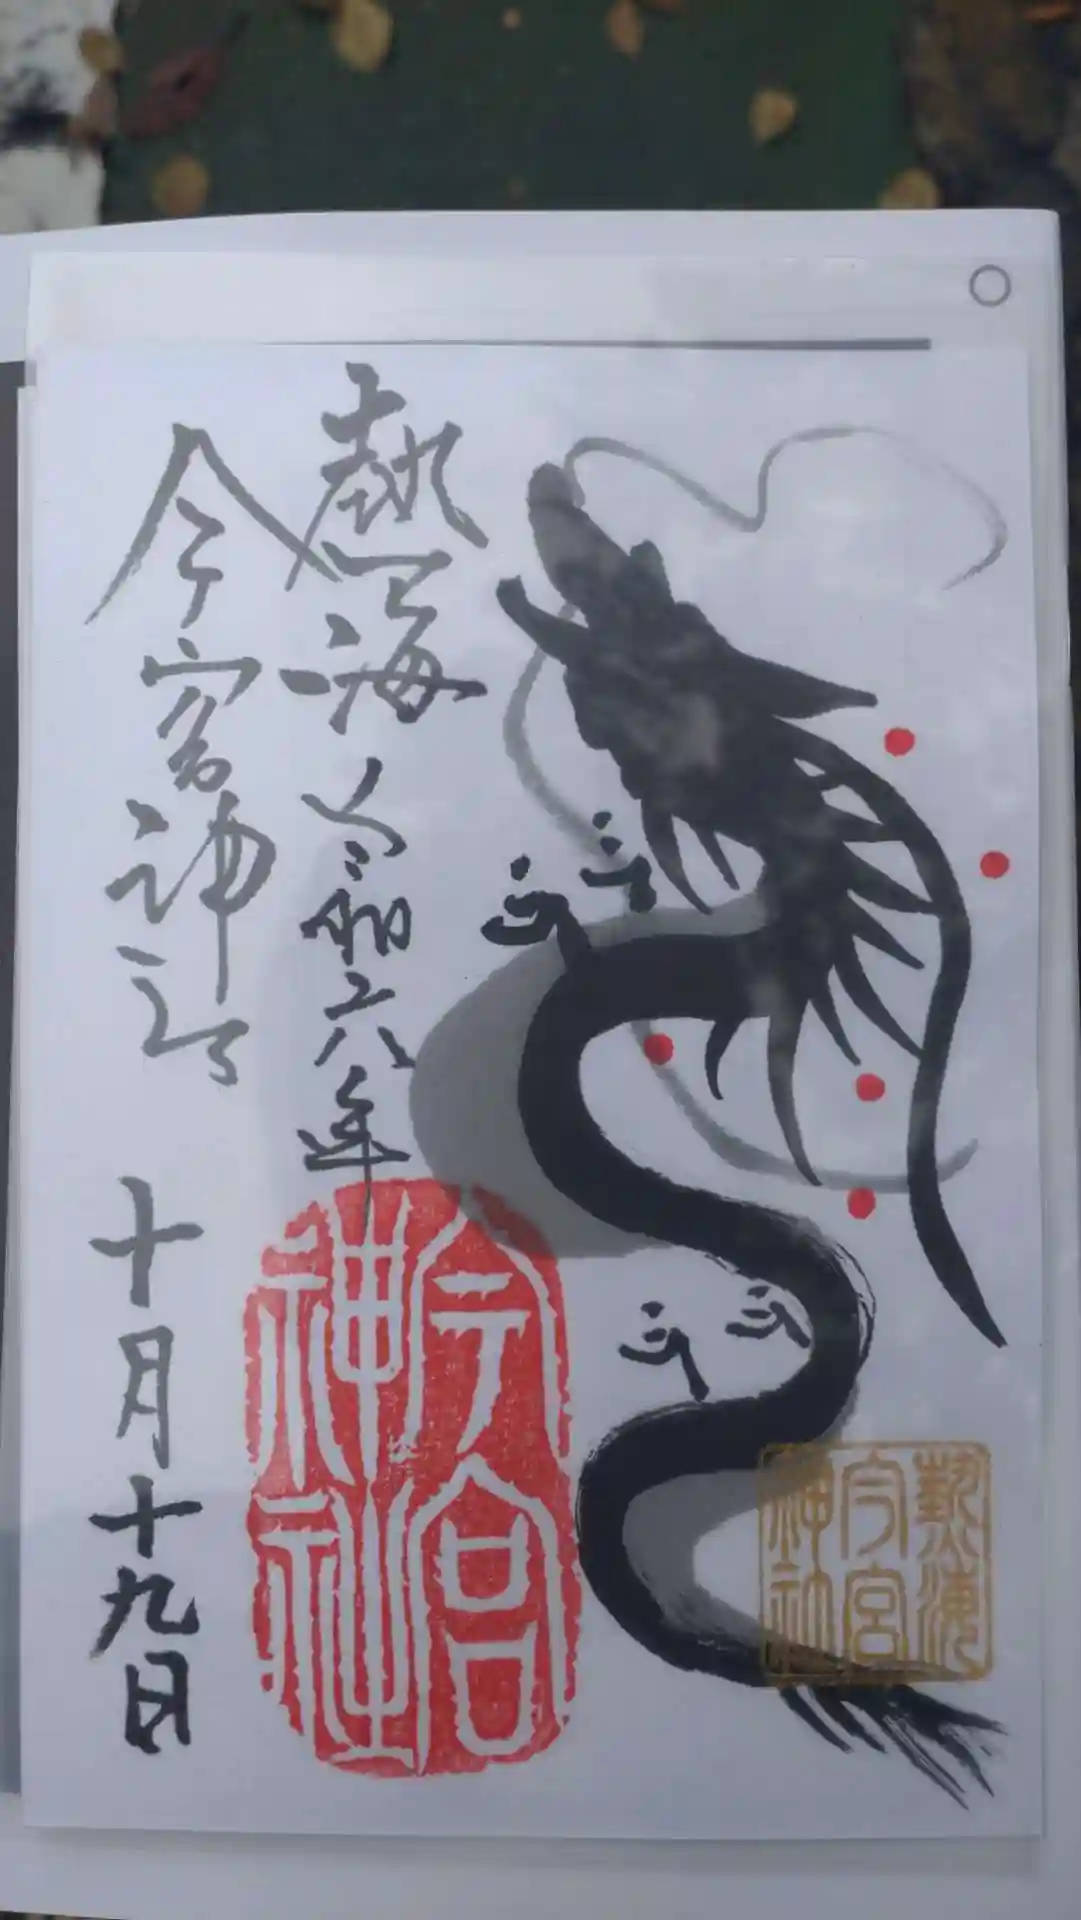 熱海
令和六年
今宮神社
十月十九日
今宮
神社
熱海
今宮
神社